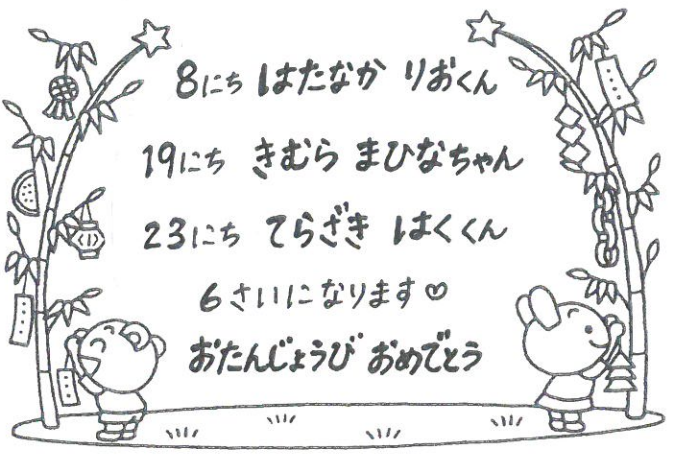 8にち はたなか りおくん
19にち きむら まひなちゃん
23にち てらざき はくくん
6さいになります♡
おたんじょうび おめでとう